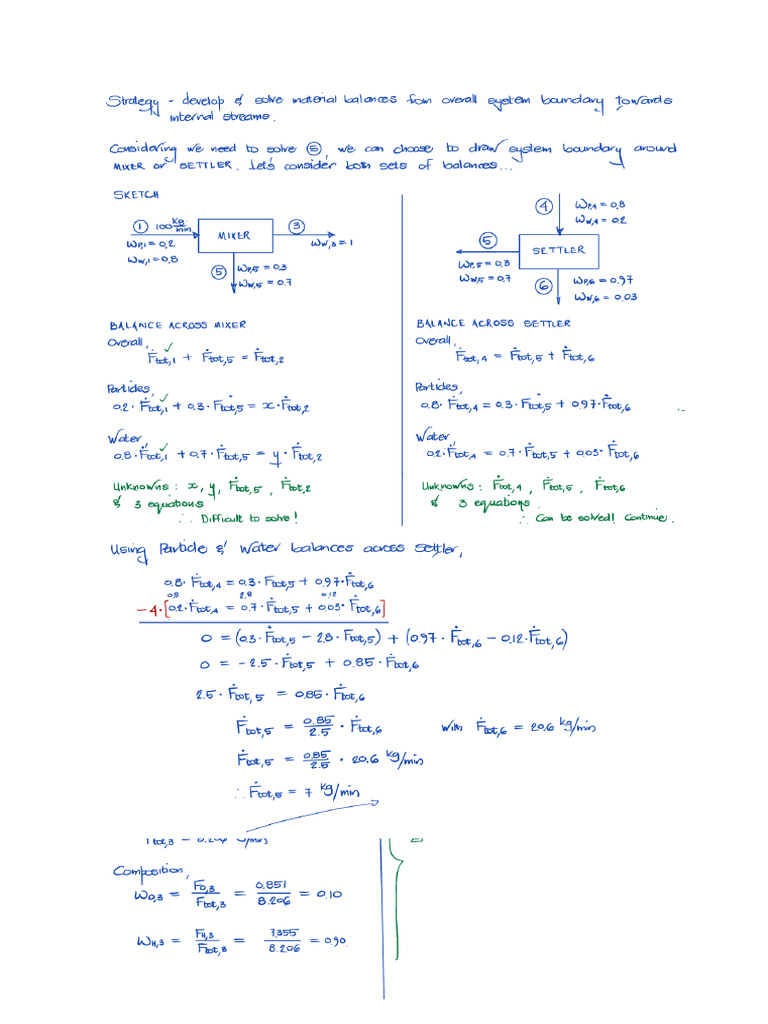 Strategy - develop & solve material balances from overall system boundary towards
internal streams.
Considering we need to solve ⑤, we can choose to draw system boundary around
MIXER or SETTLER. Let's consider both sets of balances...
SKETCH
① 100 kg/min
MIXER
③
W_P,1 = 0.2
W_W,1 = 0.8
W_W,3 = 1
⑤ W_P,5 = 0.3
W_W,5 = 0.7
④ W_P,4 = 0.8
W_W,4 = 0.2
⑤
SETTLER
W_P,5 = 0.3
W_W,5 = 0.7
⑥ W_P,6 = 0.97
W_W,6 = 0.03
BALANCE ACROSS MIXER
Overall,
Ḟtot,1 + Ḟtot,5 = Ḟtot,2
Particles,
0.2·Ḟtot,1 + 0.3·Ḟtot,5 = x·Ḟtot,2
Water,
0.8·Ḟtot,1 + 0.7·Ḟtot,5 = y·Ḟtot,2
Unknowns: x, y, Ḟtot,5, Ḟtot,2
& 3 equations
∴ Difficult to solve!
BALANCE ACROSS SETTLER
Overall,
Ḟtot,4 = Ḟtot,5 + Ḟtot,6
Particles,
0.8·Ḟtot,4 = 0.3·Ḟtot,5 + 0.97·Ḟtot,6
Water,
0.2·Ḟtot,4 = 0.7·Ḟtot,5 + 0.03·Ḟtot,6
Unknowns: Ḟtot,4, Ḟtot,5, Ḟtot,6
& 3 equations.
∴ Can be solved! Continue.
Using Particle & Water balances across settler,
0.8·Ḟtot,4 = 0.3·Ḟtot,5 + 0.97·Ḟtot,6
0.8 2.8 0.12
-4·[0.2·Ḟtot,4 = 0.7·Ḟtot,5 + 0.03·Ḟtot,6]
0 = (0.3·Ḟtot,5 - 2.8·Ḟtot,5) + (0.97·Ḟtot,6 - 0.12·Ḟtot,6)
0 = -2.5·Ḟtot,5 + 0.85·Ḟtot,6
2.5·Ḟtot,5 = 0.85·Ḟtot,6
Ḟtot,5 = 0.85/2.5 · Ḟtot,6 with Ḟtot,6 = 20.6 kg/min
Ḟtot,5 = 0.85/2.5 · 20.6 kg/min
∴ Ḟtot,5 = 7 kg/min
Composition,
W_O,3 = F_O,3/Ftot,3 = 0.851/8.206 = 0.10
W_H,3 = F_H,3/Ftot,3 = 7.355/8.206 = 0.90